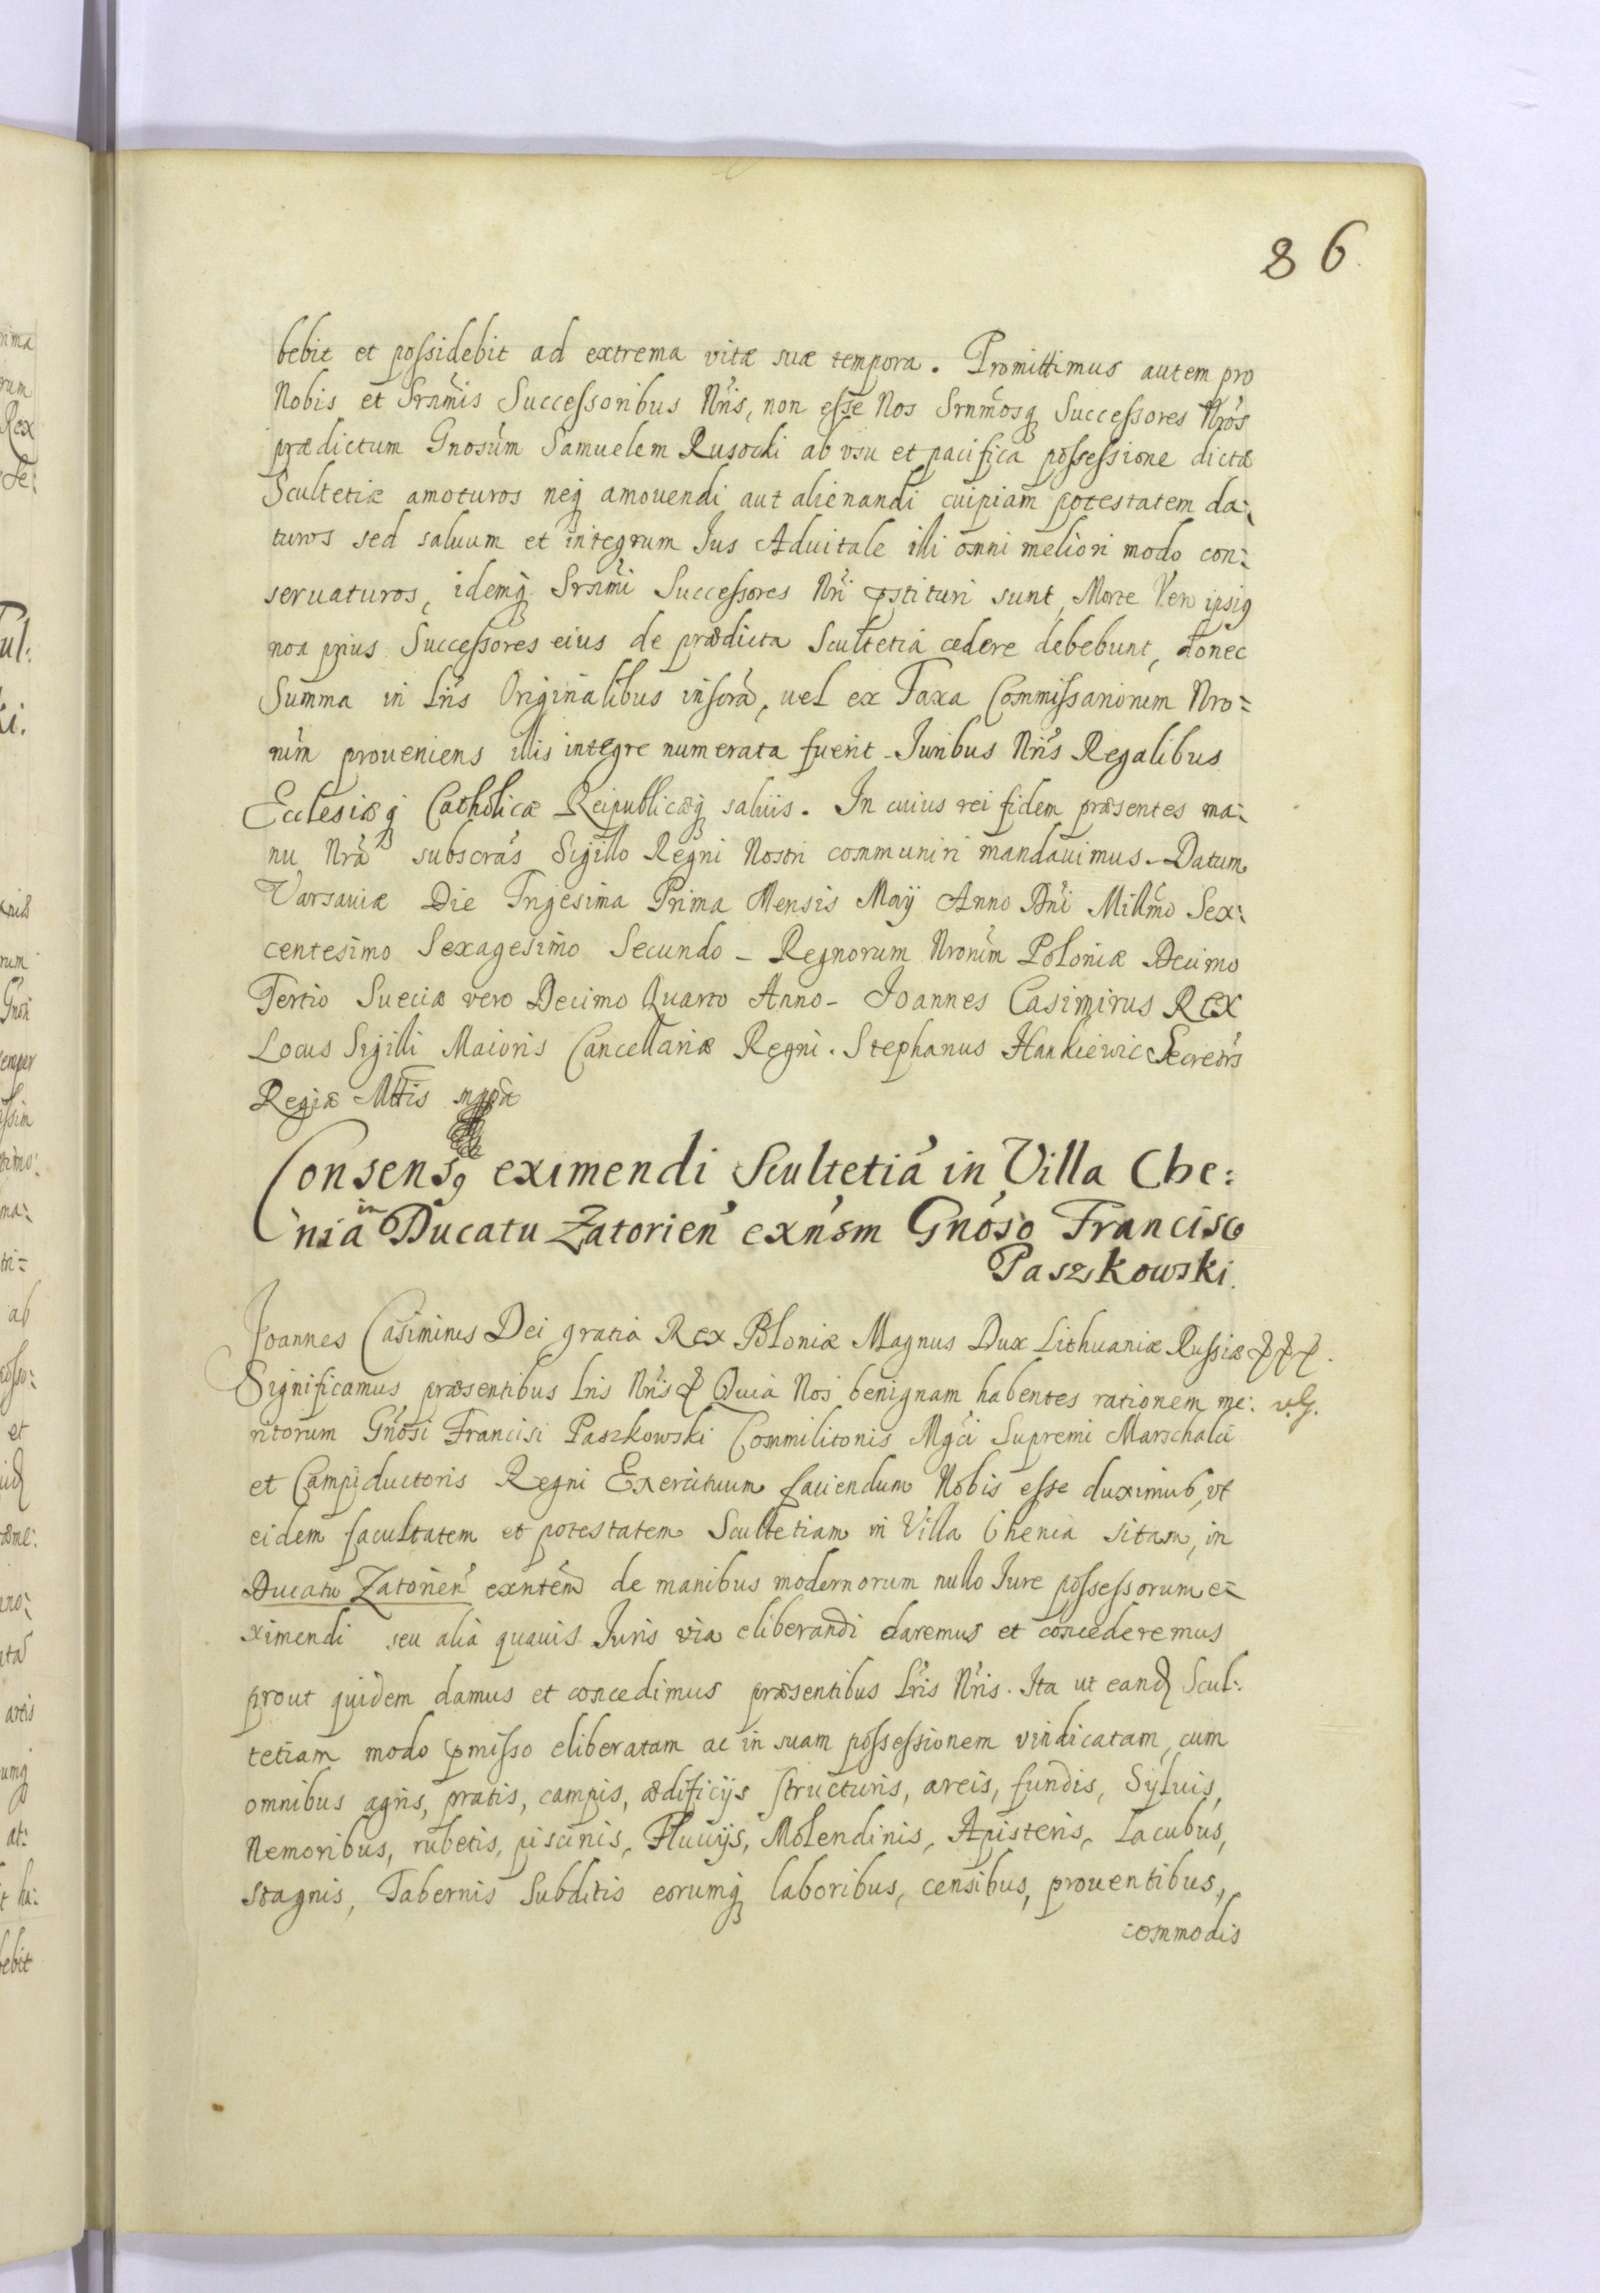 86
bebit et possidebit ad extrema vitæ suæ tempora. Promittimus autem pro
Nobis et Srnmis Successoribus Nris, non esse Nos Srnmosq Successores Nros
prædictum Gnosum Samuelem Rusocki ab vsu et pacifica possessione dictæ
Scultetiæ amoturos neq amouendi aut alienandi cuipiam potestatem da:
turos sed saluum et integrum Ius Aduitale illi omni meliori modo con:
seruaturos, idemq Srnmi Successores Nri pstituri sunt, Morte Vero ipsi9
non prius Successores eius de prædicta Scultetia cedere debebunt, donec
Summa in Lris Originalibus inscra, uel ex Taxa Commissariorum Nro=
rum proueniens illis integre numerata fuerit. Iuribus Nris Regalibus
Ecclesiæq Catholicæ Reipublicæq saluis. In cuius rei fidem præsentes ma:
nu Nra subscras Sigillo Regni Nostri communiri mandauimus. Datum
Varsauiæ Die Trigesima Prima Mensis Maij Anno Dni Millmo Sex:
centesimo Sexagesimo Secundo - Regnorum Nrorum Poloniæ Decimo
Tertio Sueciæ vero Decimo Quarto Anno - Joannes Casimirus Rex
Locus Sigilli Maioris Cancellariæ Regni. Stephanus Hankiewic Secretrs
Regiæ Mttis mppa
Consens9 eximendi Scultetia in Villa Che:
nia in Ducatu Zatorien exnsm Gnoso Francisco
Paszkowski.
Joannes Casimirus Dei gratia Rex Poloniæ Magnus Dux Lithuaniæ Russiæ & & &.
Significamus præsentibus Lris Nris & Quia Nos benignam habentes rationem me: v.g.
ritorum Gnosi Francisi Paszkowski Commilitonis Mgci Supremi Marschalci
et Campiductoris Regni Exercituum faciendum Nobis esse duximus, vt
eidem facultatem et potestatem Scultetiam in Villa Chenia sitam, in
Ducatu Zatorien exntem de manibus modernorum nullo Iure possessorum e=
ximendi seu alia quauis Iuris via eliberandi daremus et concederemus
prout quidem damus et concedimus præsentibus Lris Nris. Ita ut eand Scul:
tetiam modo pmisso eliberatam ac in suam possessionem vindicatam, cum
omnibus agris, pratis, campis, ædificijs structuris, areis, fundis, Syluis,
Nemoribus, rubetis, piscinis, Fluuijs, Molendinis, Apisteris, Lacubus,
Stagnis, Tabernis Subditis eorumq laboribus, censibus, prouentibus,
commodis